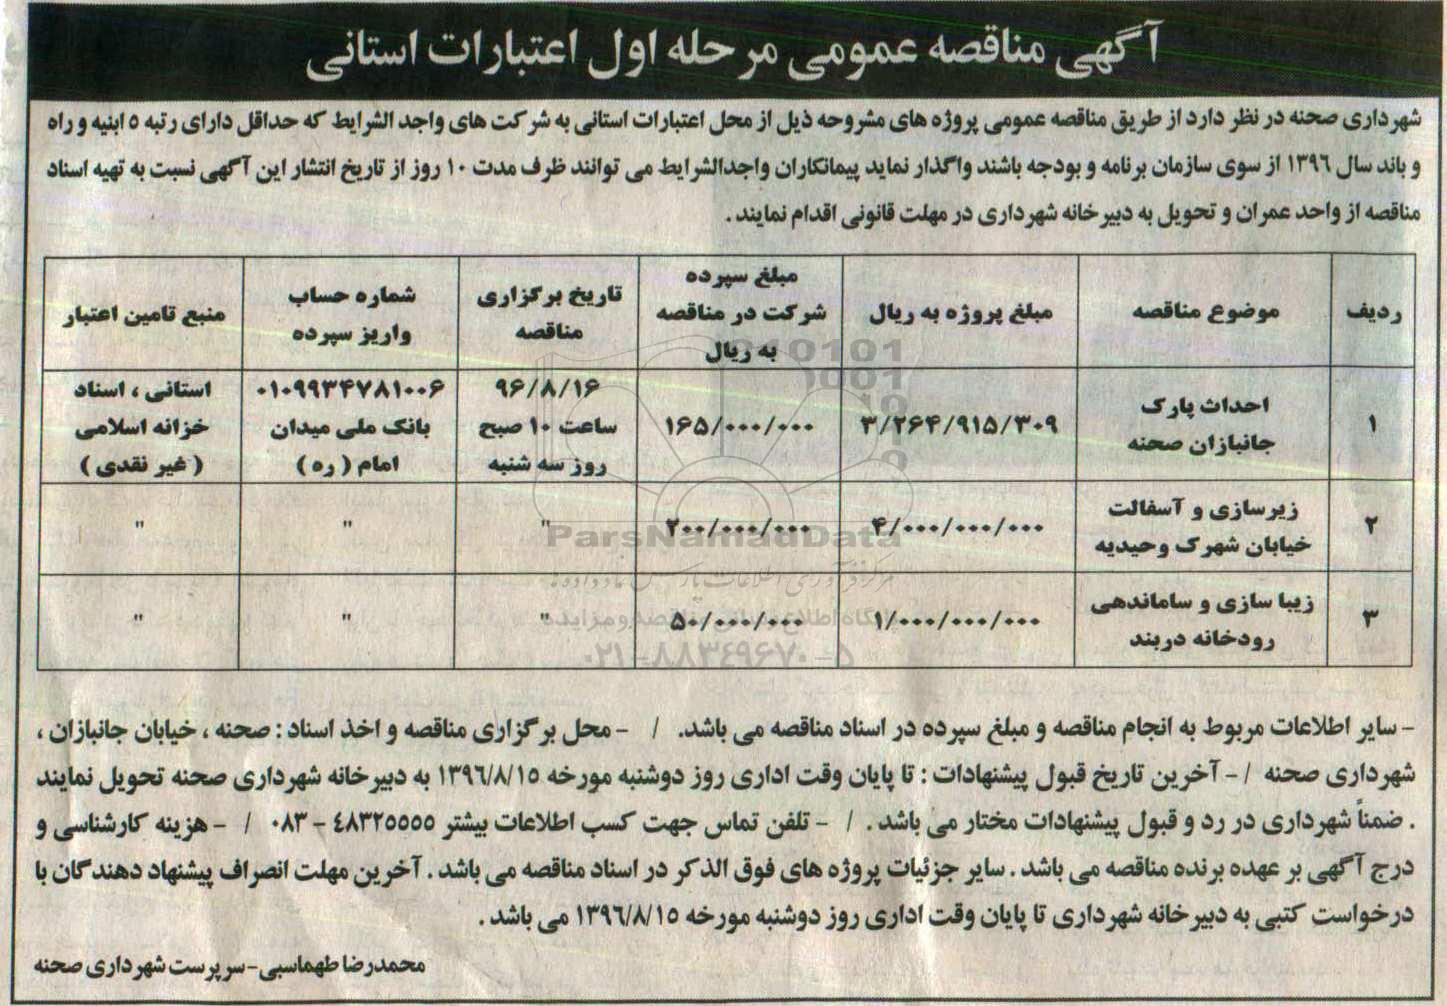 آگهی مناقصه عمومی مرحله اول اعتبارات استانی
شهرداری صحنه در نظر دارد از طریق مناقصه عمومی پروژه های مشروحه ذیل از محل اعتبارات استانی به شرکت های واجد الشرایط که حداقل دارای رتبه ۵ ابنیه و راه
و باند سال ۱۳۹۶ از سوی سازمان برنامه و بودجه باشند واگذار نماید پیمانکاران واجدالشرایط می توانند ظرف مدت ۱۰ روز از تاریخ انتشار این آگهی نسبت به تهیه اسناد
مناقصه از واحد عمران و تحویل به دبیرخانه شهرداری در مهلت قانونی اقدام نمایند .
ردیف
موضوع مناقصه
مبلغ پروژه به ریال
مبلغ سپرده
شرکت در مناقصه
به ریال
تاریخ برگزاری
مناقصه
شماره حساب
واریز سپرده
منبع تامین اعتبار
۱
احداث پارک
جانبازان صحنه
۳/۲۶۴/۹۱۵/۳۰۹
۱۶۵/۰۰۰/۰۰۰
۹۶/۸/۱۶
ساعت ۱۰ صبح
روز سه شنبه
۰۱۰۹۹۳۴۷۸۱۰۰۶
بانک ملی میدان
امام ( ره )
استانی ، اسناد
خزانه اسلامی
( غیر نقدی )
۲
زیرسازی و آسفالت
خیابان شهرک وحیدیه
۴/۰۰۰/۰۰۰/۰۰۰
۲۰۰/۰۰۰/۰۰۰
"
"
"
۳
زیبا سازی و ساماندهی
رودخانه دربند
۱/۰۰۰/۰۰۰/۰۰۰
۵۰/۰۰۰/۰۰۰
"
"
"
ParsNamadData
۰۲۱-۸۸۳۴۹۶۷۰-۵
- سایر اطلاعات مربوط به انجام مناقصه و مبلغ سپرده در اسناد مناقصه می باشد. / - محل برگزاری مناقصه و اخذ اسناد : صحنه ، خیابان جانبازان ،
شهرداری صحنه /- آخرین تاریخ قبول پیشنهادات : تا پایان وقت اداری روز دوشنبه مورخه ۱۳۹۶/۸/۱۵ به دبیرخانه شهرداری صحنه تحویل نمایند
. ضمناً شهرداری در رد و قبول پیشنهادات مختار می باشد . / - تلفن تماس جهت کسب اطلاعات بیشتر ۴۸۳۲۵۵۵۵ - ۰۸۳ / - هزینه کارشناسی و
درج آگهی بر عهده برنده مناقصه می باشد . سایر جزئیات پروژه های فوق الذکر در اسناد مناقصه می باشد . آخرین مهلت انصراف پیشنهاد دهندگان با
درخواست کتبی به دبیرخانه شهرداری تا پایان وقت اداری روز دوشنبه مورخه ۱۳۹۶/۸/۱۵ می باشد .
محمدرضا طهماسبی-سرپرست شهرداری صحنه